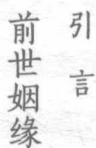 引言
前世姻缘